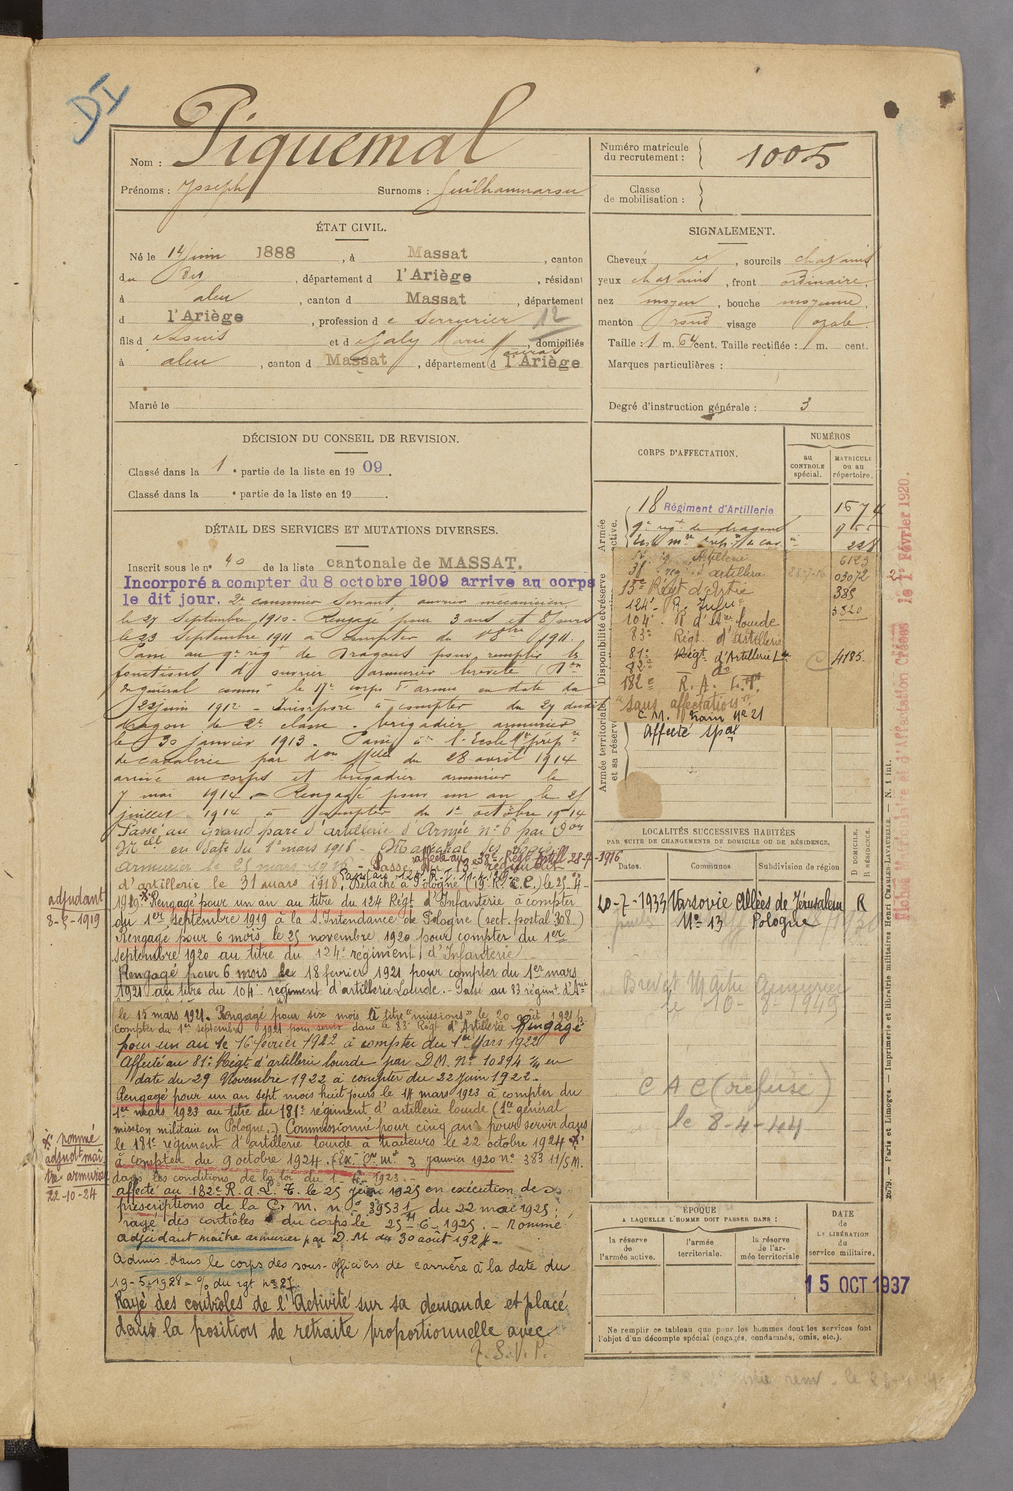 DI
Nom : Piquemal
Prénoms : Joseph Surnoms :
Numéro matricule
du recrutement : 1005
Classe
de mobilisation :
ÉTAT CIVIL.
Né le 14 juin 1888, à Massat, canton
du, département d l'Ariège, résidant
à aleu, canton d Massat, département
d l'Ariège, profession d e serrurier 12
fils d et d, domiciliés
à aleu, canton d Massat, département d l'Ariège
Marié le
SIGNALEMENT.
Cheveux, sourcils chatains
yeux chatains, front ordinaire,
nez moyen, bouche moyenne,
menton rond visage ovale.
Taille : 1 m. 64 cent. Taille rectifiée : 1 m. cent.
Marques particulières :
Degré d'instruction générale : 3
DÉCISION DU CONSEIL DE REVISION.
Classé dans la 1e partie de la liste en 1909.
Classé dans la e partie de la liste en 19
DÉTAIL DES SERVICES ET MUTATIONS DIVERSES.
Inscrit sous le n° 40 de la liste cantonale de MASSAT.
Incorporé à compter du 8 octobre 1909 arrivé au corps
le dit jour. 2e canonnier servant, ouvrier mécanicien
le 27 Septembre 1910 - Rengagé pour 3 ans et 8 jours
le 23 Septembre 1911 à compter du 1911.
Passé au 9e régt de Dragons pour remplir les
fonctions d'ouvrier armurier breveté
général commt le 17e corps d'armée en date du
22 juin 1912 - Incorporé à compter du 27 dudit
Dragon de 2e classe. brigadier armurier
le 30 janvier 1913. Passé à l'Ecole
de cavalerie par Mlle du 28 avril 1914
arrivé au corps et brigadier armurier le
7 mai 1914 - Rengagé pour un an le
juillet 1914 à compter du 1er octobre 1914
Passé au Grand parc d'artillerie d'Armée n° 6 par
en date du 1er mars 1916 - Maréchal des logis
armurier le 25 mars 1916 - Passé au 13e régiment
d'artillerie le 31 mars 1918. Détaché à Pologne le 25-4-
1920. Rengagé pour un an au titre du 124 Régt d'Infanterie à compter
du 1er septembre 1919 à la S. Intendance de Pologne (sect. postal 308)
Rengagé pour 6 mois le 25 novembre 1920 pour compter du 1er
septembre 1920 au titre du 124e régiment d'Infanterie.
Rengagé pour 6 mois le 18 février 1921 pour compter du 1er mars
1921 au titre du 104e régiment d'artillerie Lourde. - Passé au 83 régimt d'Arie
le 15 mars 1921. Rengagé pour six mois le titre "missions" le 20 août 1921 p.
compter du 1er septembre 1921 pour servir dans le 83e Régt d'Artillerie Rengagé
pour un an le 16 février 1922 à compter du 1er Mars 1922
Affecté au 81e Régt d'artillerie lourde par D.M. N° 10894 en
date du 29 Novembre 1922 à compter du 22 Juin 1922.
Rengagé pour un an sept mois huit jours le 14 mars 1923 à compter du
1er mars 1923 au titre du 181e régiment d'artillerie lourde
mission militaire en Pologne.) Commissionné pour cinq ans pour servir dans
le 181e régiment d'artillerie lourde à tracteurs le 22 octobre 1924
à compter du 9 octobre 1924. Cre me 3 janvier 1920 n° 383 11/5 M.
dans les conditions de la loi du 1923.
affecté au 182e R. a. L. T. le 25 juin 1925 en exécution des
prescriptions de la C. m. n° 39531 du 22 mai 1925;
rayé des contrôles du corps le 25-6-1925. - Nommé
adjudant maître armurier par D. M du 30 août 192
Admis dans le corps des sous-officiers de carrière à la date du
19-5-1928 - % du rgt n° 27.
Rayé des contrôles de l'Activité sur sa demande et placé
dans la position de retraite proportionnelle avec
T. S. V. P.
adjudant
8-5-1919
nommé
adjudt maî
tre armurier
22-10-24
CORPS D'AFFECTATION.
NUMÉROS
au
CONTROLE
spécial.
MATRICULE
ou au
répertoire.
Armée active.
Disponibilité et réserve
Armée territoriale et sa réserve
18 Régiment d'Artillerie 1574
9e régt de dragons
228
Artillerie 6123
artillerie 03072
13e Régt d'Artie 385
124e R. Infie 3320
104e R d'Arie Lourde
83e Régt. d'Artillerie
81e Régt. d'Artillerie Lde 4185
182e R. A. L. T.
Sans affectation
C. M. Train n° 21
Affecté spal
LOCALITÉS SUCCESSIVES HABITÉES
PAR SUITE DE CHANGEMENTS DE DOMICILE OU DE RÉSIDENCE.
Dates. Communes Subdivision de région D. DOMICILE. R. RÉSIDENCE.
20-7-1933 Varsovie Allées de Jérusalem R
N° 13 Pologne
Brevet Maitre Armurier
le 10-8-1943
C A C (refusé)
le 8-4-44
ÉPOQUE
A LAQUELLE L'HOMME DOIT PASSER DANS :
la réserve
de
l'armée active.
l'armée
territoriale.
la réserve
de l'ar-
mée territoriale
DATE
de
LA LIBÉRATION
du
service militaire.
15 OCT 1937
Ne remplir ce tableau que pour les hommes dont les services font
l'objet d'un décompte spécial (engagés, condamnés, omis, etc.).
2679. — Paris et Limoges. — Imprimerie et librairie militaires Henri CHARLES-LAVAUZELLE. — N. 1 int.
Fiches Matriculaire et d'Affectation Créées le 1er Février 1920.